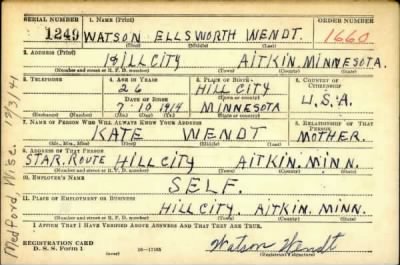 SERIAL NUMBER 1. NAME (Print) ORDER NUMBER
1249 WATSON ELLSWORTH WENDT. 1660
(First) (Middle) (Last)
2. ADDRESS (Print)
HILL CITY AITKIN, MINNESOTA.
(Number and street or R. F. D. number) (Town) (County) (State)
3. TELEPHONE 4. AGE IN YEARS 5. PLACE OF BIRTH 6. COUNTRY OF CITIZENSHIP
26 HILL CITY
DATE OF BIRTH (Town or county)
7-10-1914 MINNESOTA U.S.A.
(Exchange) (Number) (Mo.) (Day) (Yr.) (State or country)
7. NAME OF PERSON WHO WILL ALWAYS KNOW YOUR ADDRESS 8. RELATIONSHIP OF THAT PERSON
KATE WENDT MOTHER.
(Mr., Mrs., Miss) (First) (Middle) (Last)
9. ADDRESS OF THAT PERSON
STAR. ROUTE HILL CITY AITKIN. MINN.
(Number and street or R. F. D. number) (Town) (County) (State)
10. EMPLOYER'S NAME
SELF.
11. PLACE OF EMPLOYMENT OR BUSINESS
HILL CITY. AITKIN. MINN.
(Number and street or R. F. D. number) (Town) (County) (State)
I AFFIRM THAT I HAVE VERIFIED ABOVE ANSWERS AND THAT THEY ARE TRUE.
REGISTRATION CARD
D. S. S. Form 1 16-17105 Watson Wendt
(Registrant's signature)
Medford, Wisc. 12/3/41